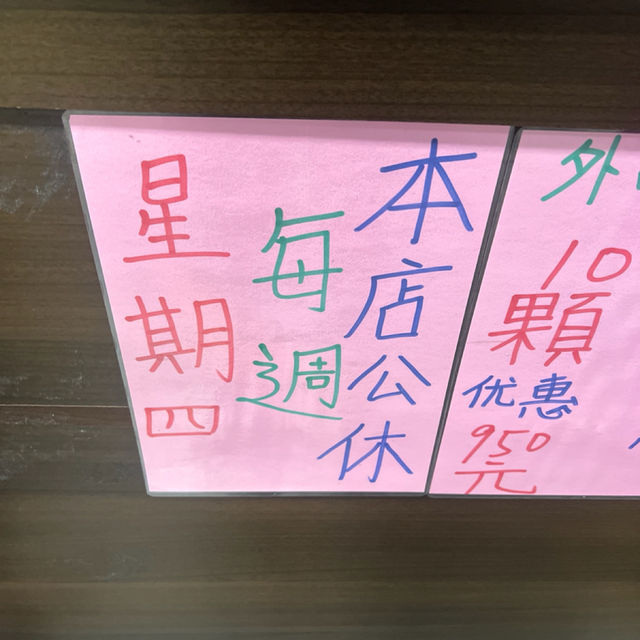 本店公休
每週
星期四
外
10
顆
优惠
950
元